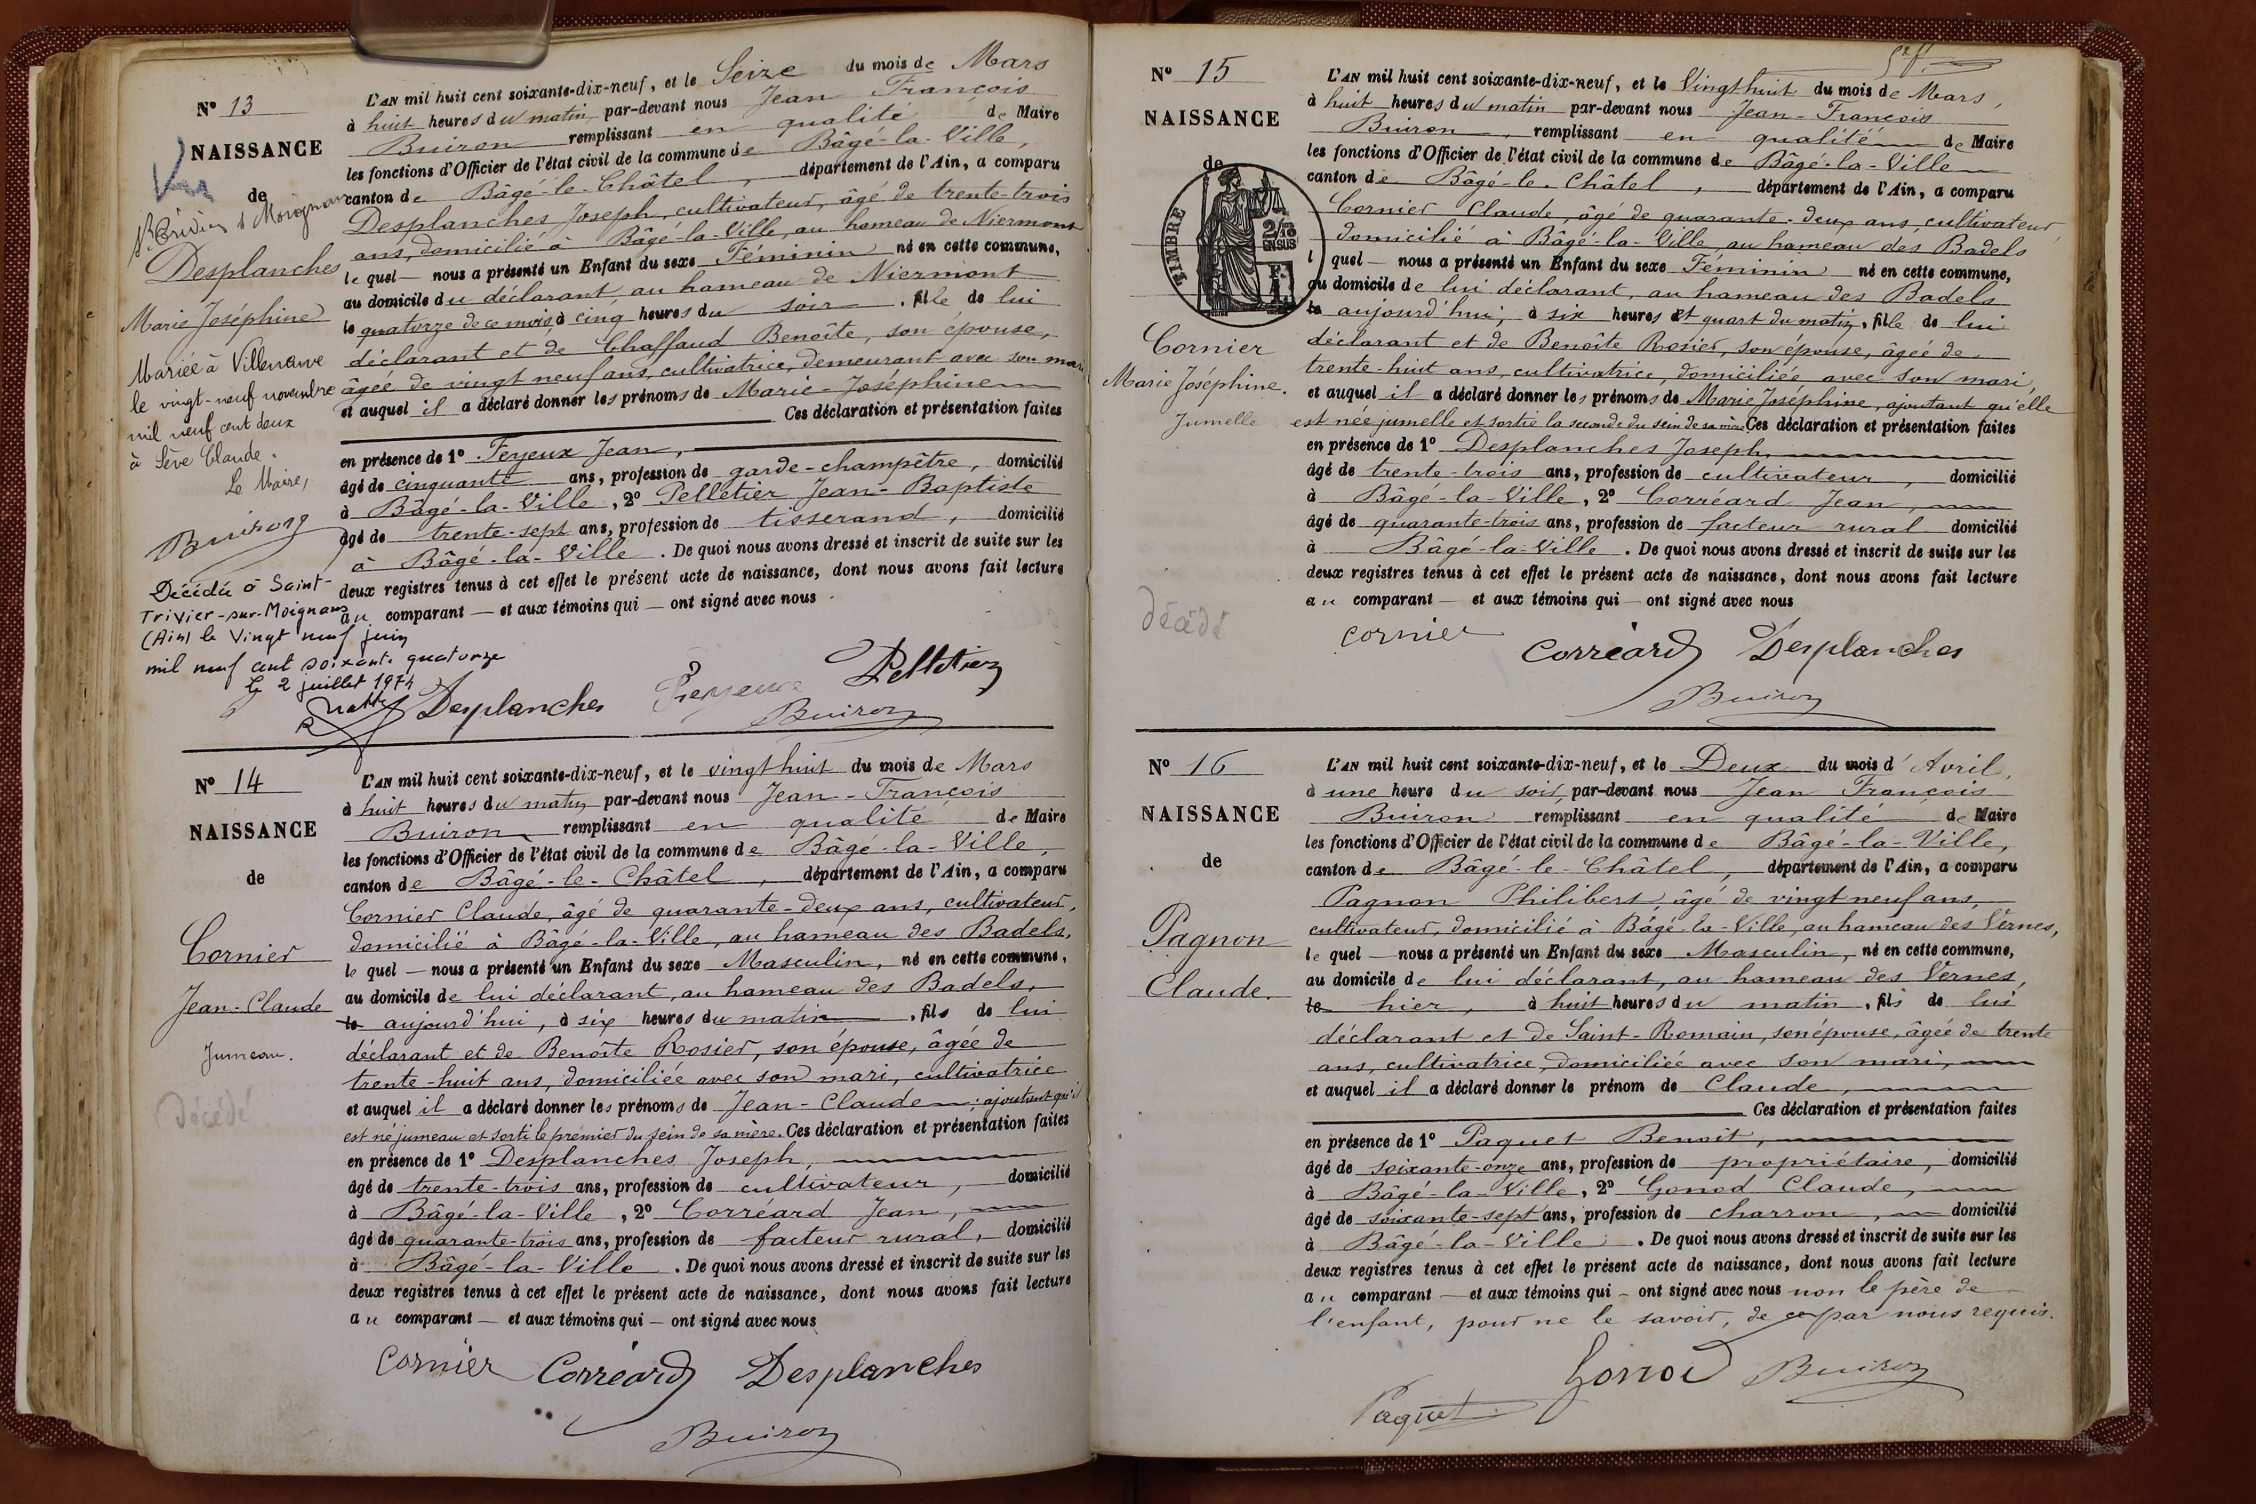 N° 13
NAISSANCE
de
Desplanches
Marie Joséphine
Mariée à Villeneuve
le vingt-neuf novembre
mil neuf cent deux
à Sève Claude.
Le Maire,
Buiron
Décédée à Saint-
Trivier-sur-Moignans
(Ain) le Vingt neuf juin
mil neuf cent soixante quatorze
Le 2 juillet 1974
L'AN mil huit cent soixante-dix-neuf, et le Seize du mois de Mars
à huit heures du matin, par-devant nous Jean François
Buiron remplissant en qualité de Maire
les fonctions d'Officier de l'état civil de la commune de Bâgé-la-Ville,
canton de Bâgé-le-Châtel, département de l'Ain, a comparu
Desplanches Joseph, cultivateur, âgé de trente-trois
ans, domicilié à Bâgé-la-Ville, au hameau de Niermont
le quel — nous a présenté un Enfant du sexe Féminin né en cette commune,
au domicile du déclarant, au hameau de Niermont
le quatorze de ce mois, à cinq heures du soir, fille de lui
déclarant et de Chaffaud Benoîte, son épouse,
âgée de vingt neuf ans, cultivatrice, demeurant avec son mari
et auquel il a déclaré donner les prénoms de Marie-Joséphine
Ces déclaration et présentation faites
en présence de 1° Feyeux Jean,
âgé de cinquante ans, profession de garde-champêtre, domicilié
à Bâgé-la-Ville, 2° Pelletier Jean-Baptiste
âgé de trente-sept ans, profession de tisserand, domicilié
à Bâgé-la-Ville. De quoi nous avons dressé et inscrit de suite sur les
deux registres tenus à cet effet le présent acte de naissance, dont nous avons fait lecture
au comparant — et aux témoins qui — ont signé avec nous.
Desplanches Pelletier
Buiron
N° 14
NAISSANCE
de
Cornier
Jean-Claude
Jumeau.
décédé
L'AN mil huit cent soixante-dix-neuf, et le vingt huit du mois de Mars
à huit heures du matin, par-devant nous Jean-François
Buiron, remplissant en qualité de Maire
les fonctions d'Officier de l'état civil de la commune de Bâgé-la-Ville,
canton de Bâgé-le-Châtel, département de l'Ain, a comparu
Cornier Claude, âgé de quarante-deux ans, cultivateur,
domicilié à Bâgé-la-Ville, au hameau des Badels,
le quel — nous a présenté un Enfant du sexe Masculin, né en cette commune,
au domicile de lui déclarant, au hameau des Badels,
le aujourd'hui, à six heures du matin, fils de lui
déclarant et de Benoîte Rosier, son épouse, âgée de
trente-huit ans, domiciliée avec son mari, cultivatrice
et auquel il a déclaré donner les prénoms de Jean-Claude ; ajoutant qu'il
est né jumeau et sorti le premier du sein de sa mère. Ces déclaration et présentation faites
en présence de 1° Desplanches Joseph,
âgé de trente-trois ans, profession de cultivateur, domicilié
à Bâgé-la-Ville, 2° Corréard Jean,
âgé de quarante-trois ans, profession de facteur rural, domicilié
à Bâgé-la-Ville. De quoi nous avons dressé et inscrit de suite sur les
deux registres tenus à cet effet le présent acte de naissance, dont nous avons fait lecture
au comparant — et aux témoins qui — ont signé avec nous
cornier Corréard Desplanches
Buiron
N° 15
NAISSANCE
de
TIMBRE
2/10 EN SUS
Cornier
Marie Joséphine.
Jumelle
décédé
L'AN mil huit cent soixante-dix-neuf, et le Vingt huit du mois de Mars,
à huit heures du matin par-devant nous Jean-François
Buiron, remplissant en qualité de Maire
les fonctions d'Officier de l'état civil de la commune de Bâgé-la-Ville
canton de Bâgé-le-Châtel, département de l'Ain, a comparu
Cornier Claude, âgé de quarante-deux ans, cultivateur,
domicilié à Bâgé-la-Ville, au hameau des Badels
l quel — nous a présenté un Enfant du sexe Féminin né en cette commune,
au domicile de lui déclarant, au hameau des Badels
le aujourd'hui, à six heures et quart du matin, fille de lui
déclarant et de Benoîte Rosier, son épouse, âgée de
trente-huit ans, cultivatrice, domiciliée avec son mari,
et auquel il a déclaré donner les prénoms de Marie Joséphine, ajoutant qu'elle
est née jumelle et sortie la seconde du sein de sa mère. Ces déclaration et présentation faites
en présence de 1° Desplanches Joseph,
âgé de trente-trois ans, profession de cultivateur, domicilié
à Bâgé-la-Ville, 2° Corréard Jean,
âgé de quarante-trois ans, profession de facteur rural domicilié
à Bâgé-la-Ville. De quoi nous avons dressé et inscrit de suite sur les
deux registres tenus à cet effet le présent acte de naissance, dont nous avons fait lecture
au comparant — et aux témoins qui — ont signé avec nous
cornier Corréard Desplanches
Buiron
N° 16
NAISSANCE
de
Pagnon
Claude.
L'AN mil huit cent soixante-dix-neuf, et le Deux du mois d'Avril,
à une heure du soir, par-devant nous Jean François
Buiron remplissant en qualité de Maire
les fonctions d'Officier de l'état civil de la commune de Bâgé-la-Ville,
canton de Bâgé-le-Châtel, département de l'Ain, a comparu
Pagnon Philibert, âgé de vingt neuf ans,
cultivateur, domicilié à Bâgé-la-Ville, au hameau des Vernes,
le quel — nous a présenté un Enfant du sexe Masculin, né en cette commune,
au domicile de lui déclarant, au hameau des Vernes,
le hier, à huit heures du matin, fils de lui
déclarant et de Saint-Romain, son épouse, âgée de trente
ans, cultivatrice, domiciliée avec son mari,
et auquel il a déclaré donner le prénom de Claude,
Ces déclaration et présentation faites
en présence de 1° Paquet Benoît,
âgé de soixante-onze ans, profession de propriétaire, domicilié
à Bâgé-la-Ville, 2° Gonod Claude,
âgé de soixante-sept ans, profession de charron, domicilié
à Bâgé-la-Ville. De quoi nous avons dressé et inscrit de suite sur les
deux registres tenus à cet effet le présent acte de naissance, dont nous avons fait lecture
au comparant — et aux témoins qui — ont signé avec nous non le père de
l'enfant, pour ne le savoir, de ce par nous requis.
Gonod Buiron
Paquet